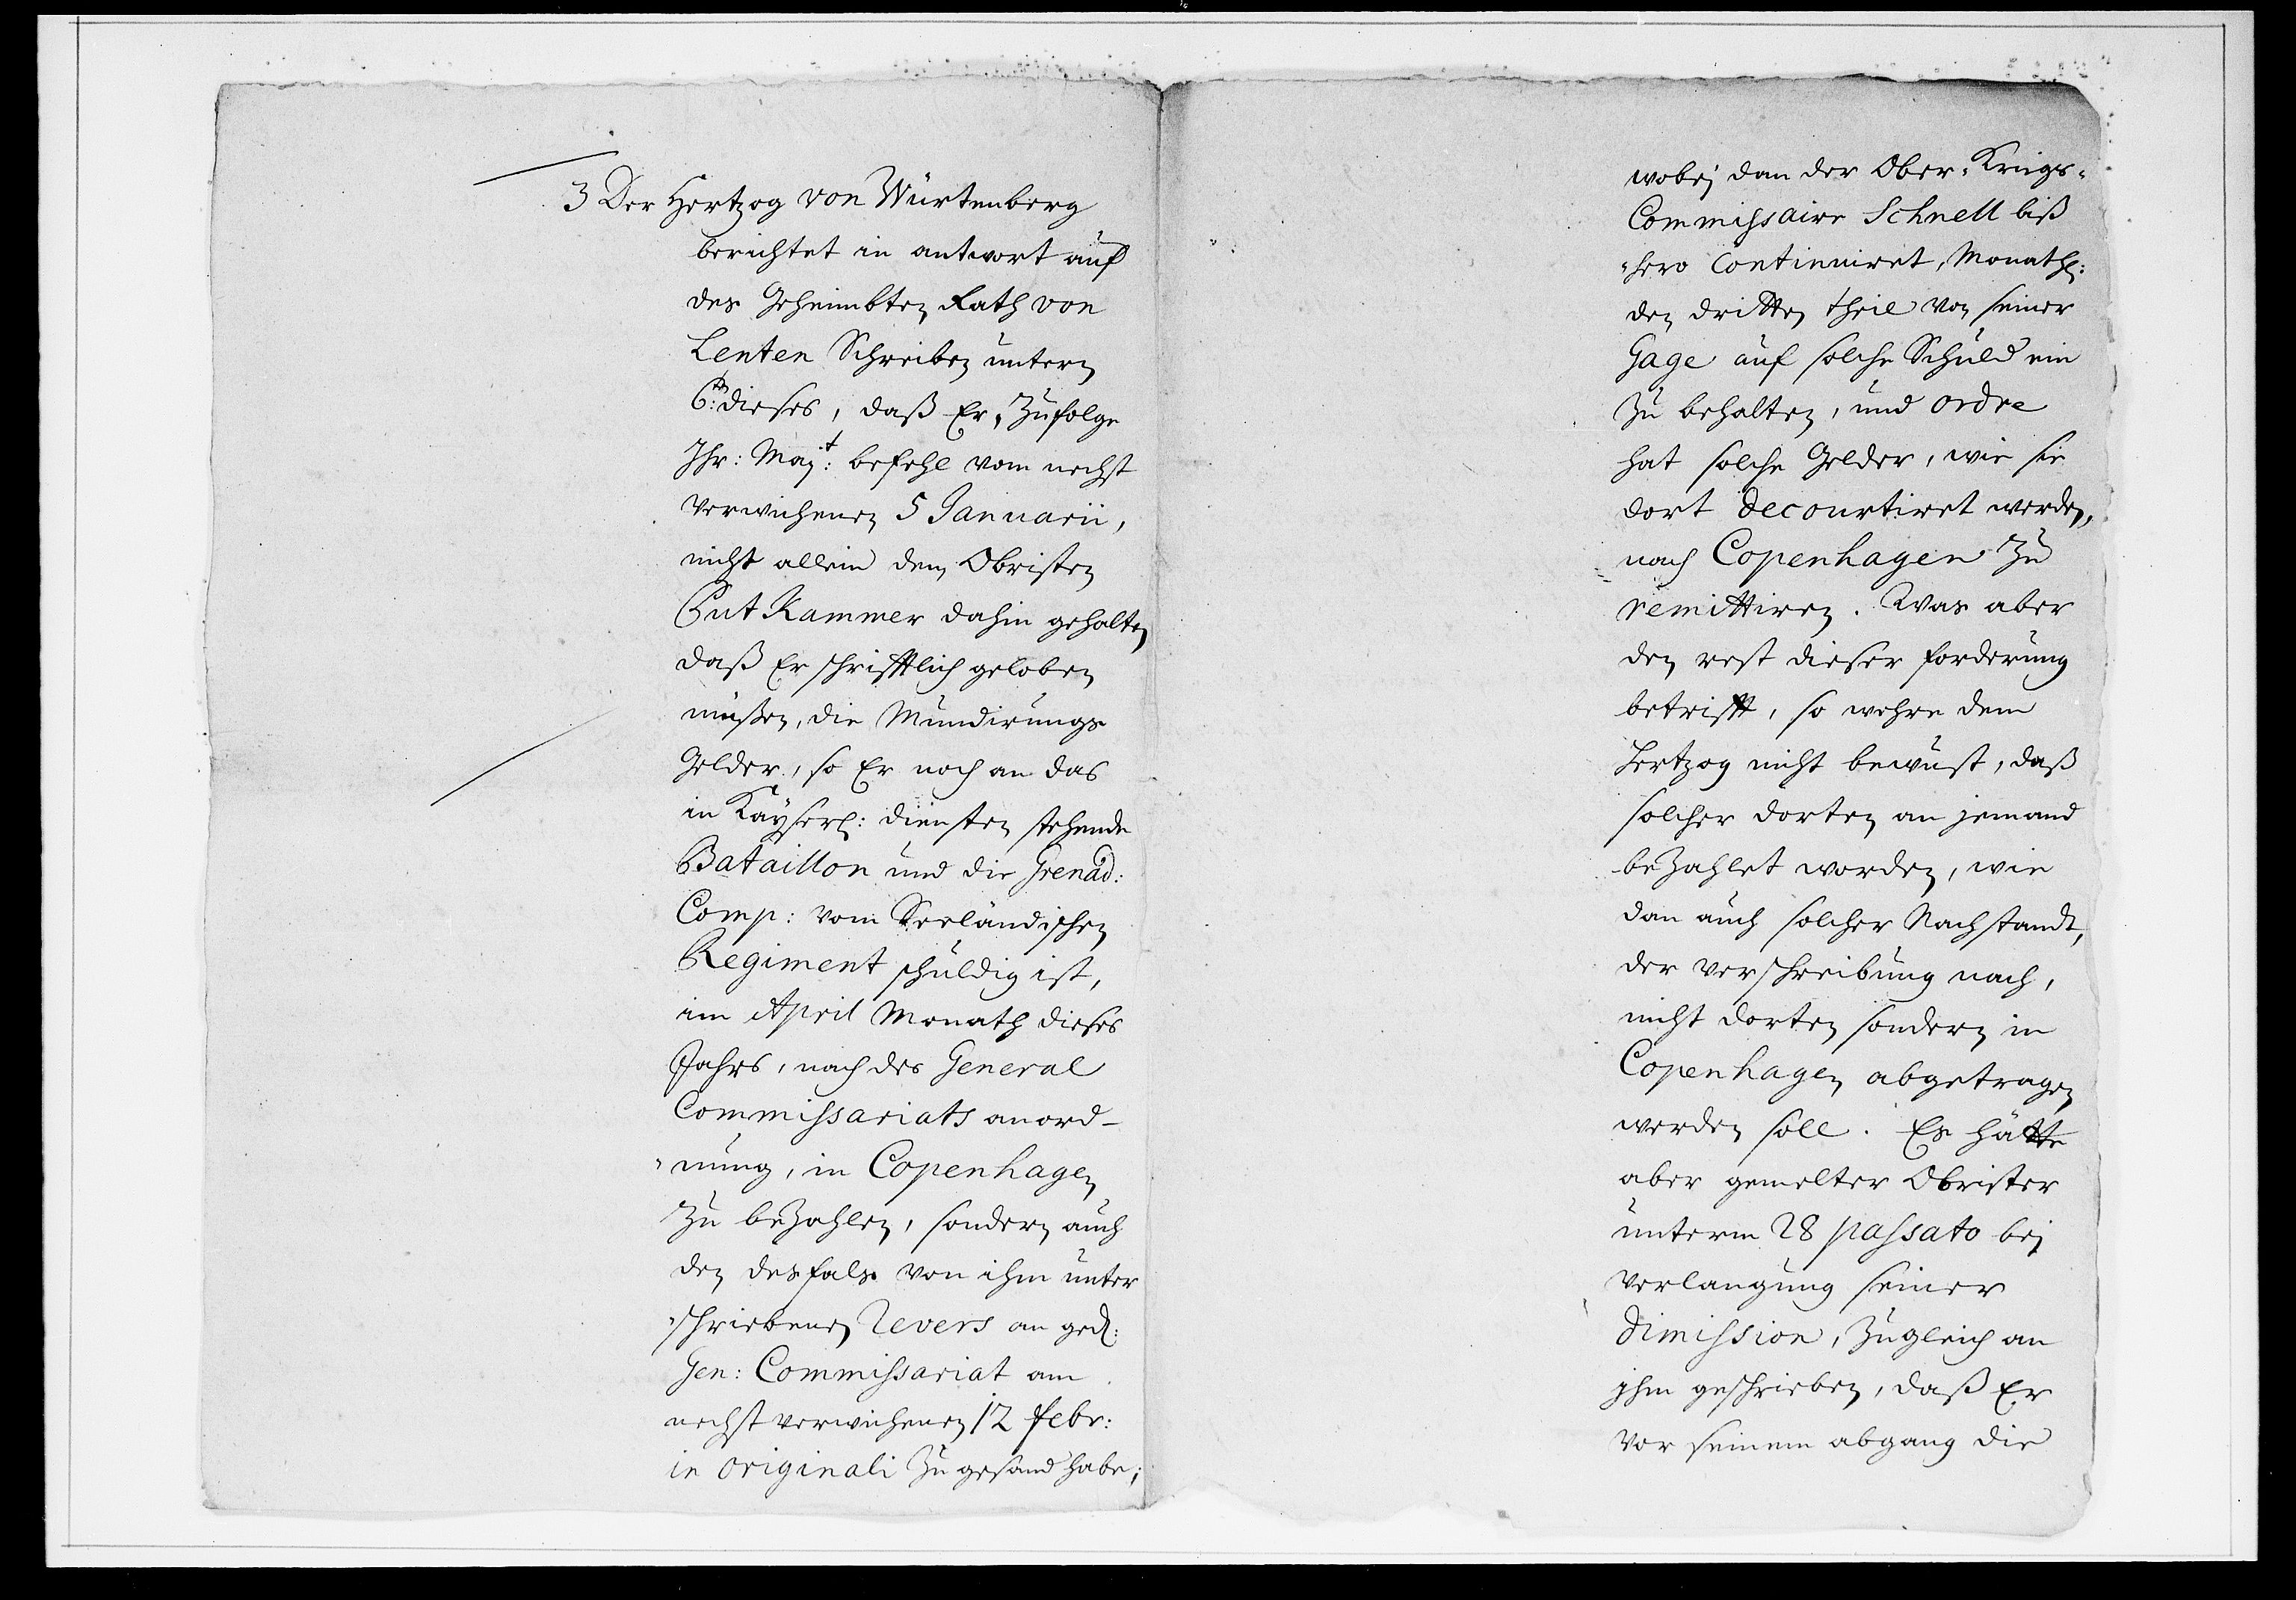 3 Der Hertzog von Würtenberg
berichtet in antwort auf
des Geheimbten Rath von
Lenten Schreiben untern
6ten: dieses, daß Er, Zufolge
Ihr: Majt: befehl vom nechst
verwichenen 5 Januarii,
nicht allein dem Obristen
Gut Kammer dahin gehalten
daß Er schrifftlich geloben
müßen, die Mundirungs
Gelder, so Er noch an das
in Kayserl: diensten stehende
Bataillon und die Grenad:
Comp: vom Seeländischen
Regiment schuldig ist,
im April Monath dieses
Jahrs, nach des General
Commissariats anord-
nung, in Copenhagen
zu bezahlen, sondern auch
den desfals von ihm unter
schriebenen Revers an ged:
Gen: Commissariat am
nechst verwichenen 12 febr:
in originali zu gesand habe;
wobej dan der Ober-Kriegs-
Commissaire Schnell biß
hero continuiret, Monathl:
den dritten theil von seiner
Gage auf solche Schuld ein
zu behalten, und ordre
hat solche Gelder, wie sie
dort decourtiret werden,
nach Copenhagen zu
remittiren. Was aber
den rest dieser forderung
betrifft, so wehre dem
Hertzog nicht bewust, daß
solcher dorten an jemand
bezahlet worden, wie
dan auch solcher Nachstandt,
der verschreibung nach,
nicht dorten sondern in
Copenhagen abgetragen
werden soll. Es hätte
aber gemelter Obrister
unterm 28 passato bej
verlangung seiner
Dimission, zugleich an
ihm geschrieben, daß Er
vor seinem abgang die